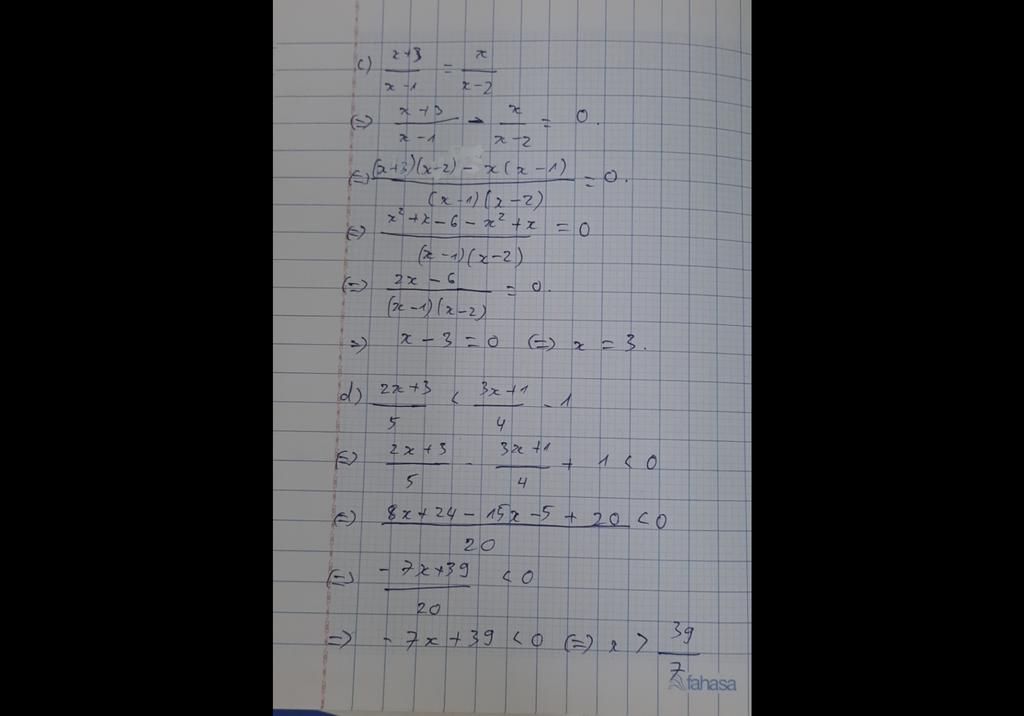 c) \frac{x+3}{x-1} = \frac{x}{x-2}
(=) \frac{x+3}{x-1} - \frac{x}{x-2} = 0.
(=) \frac{(x+3)(x-2) - x(x-1)}{(x-1)(x-2)} = 0.
(=) \frac{x² + x - 6 - x² + x}{(x-1)(x-2)} = 0
(=) \frac{2x - 6}{(x-1)(x-2)} = 0.
=) x - 3 = 0 (=) x = 3.
d) \frac{2x+3}{5} < \frac{3x+1}{4} - 1
(=) \frac{2x+3}{5} - \frac{3x+1}{4} + 1 < 0
(=) \frac{8x + 24 - 15x - 5 + 20}{20} < 0
(=) \frac{-7x+39}{20} < 0
=) -7x + 39 < 0 (=) x > \frac{39}{7}
fahasa